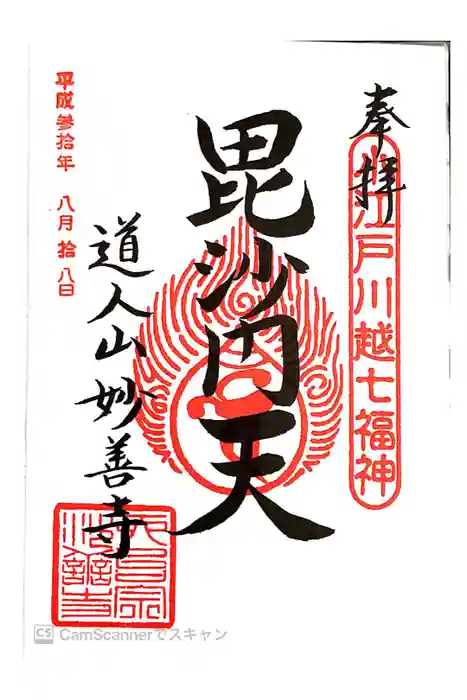 奉拝
小江戸川越七福神
毘沙門天
道人山妙善寺
平成参拾年 八月 拾八日
天台宗
妙善寺
CS CamScannerでスキャン